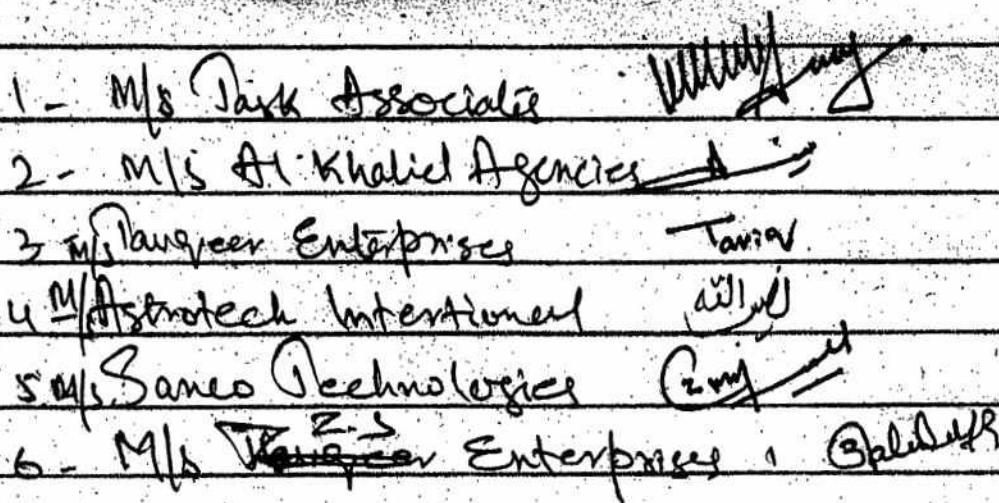 1- M/s Task Associates
2- M/s Al-Khalid Agencies
3 M/s Tauqeer Enterprises Tariq
4 M/s Astrotech Intertional
5. M/s. Sanco Technologies
6- M/s Z.S Enterprises